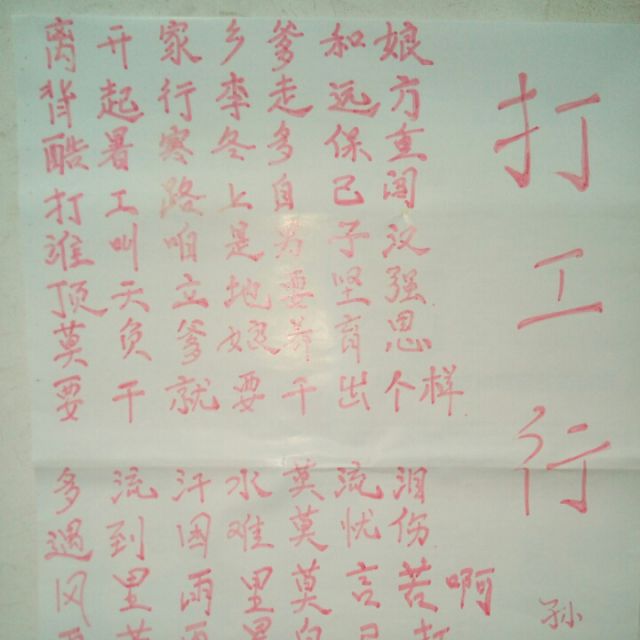 打工行
孙
离开家乡爹和娘
背起行李走远方
酷暑寒冬多保重
打工路上自己闯
谁叫咱是男子汉
顶天立地要坚强
莫负爹娘养育恩
要干就要干出个样
多流汗水莫流泪
遇到困难莫忧伤
风里雨里莫言苦啊